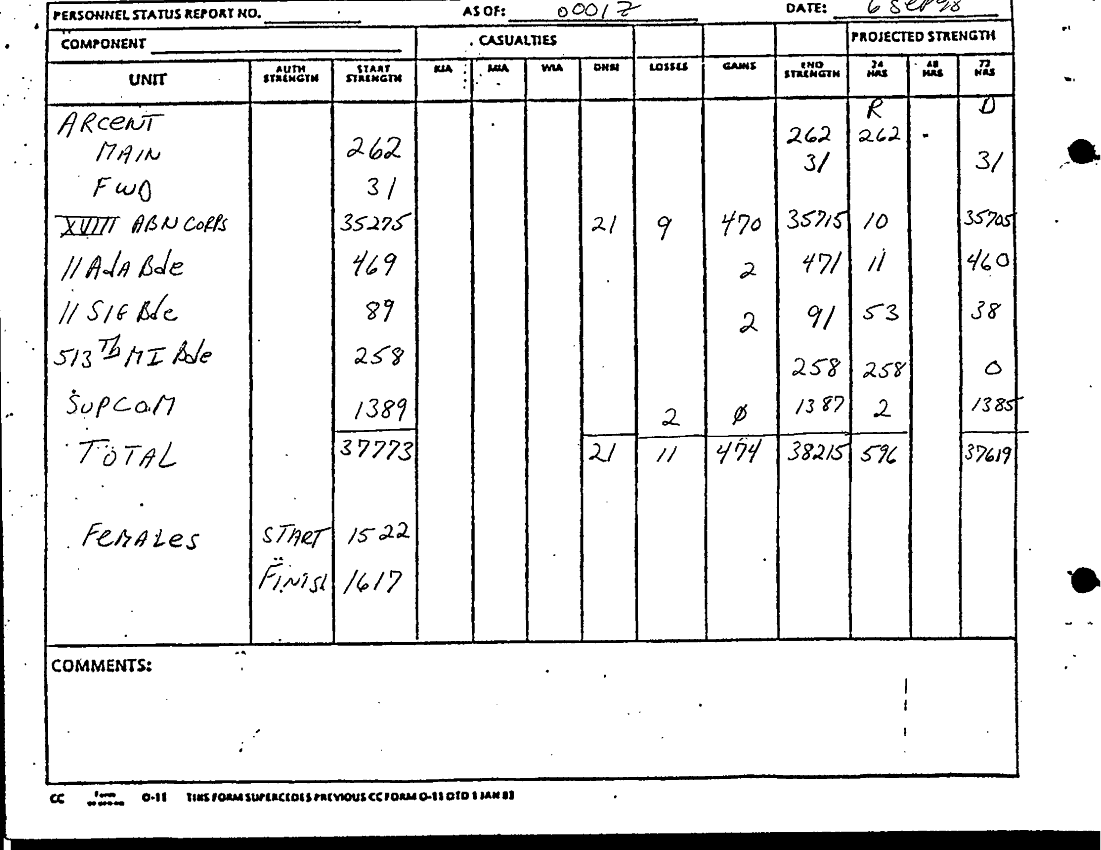 PERSONNEL STATUS REPORT NO. AS OF: 0001Z DATE: 6 Sep
COMPONENT CASUALTIES PROJECTED STRENGTH
UNIT AUTH STRENGTH START STRENGTH KIA MIA WIA LOSSES GAINS END STRENGTH 24 HRS 48 HRS 72 HRS
ARCENT R D
MAIN 262 262 262 -
FWD 31 31 31
XVIII ABN CORPS 35275 21 9 470 35715 10 35705
11 AdA Bde 469 2 471 11 460
11 SIG Bde 89 2 91 53 38
513 Th MI Bde 258 258 258 0
SUPCOM 1389 2 Ø 1387 2 1385
TOTAL 37773 21 11 474 38215 596 37619
FEMALES START 1522
FINISH 1617
COMMENTS:
CC Form O-11 THIS FORM SUPERCEDES PREVIOUS CC FORM O-11 DTD 1 JAN 83